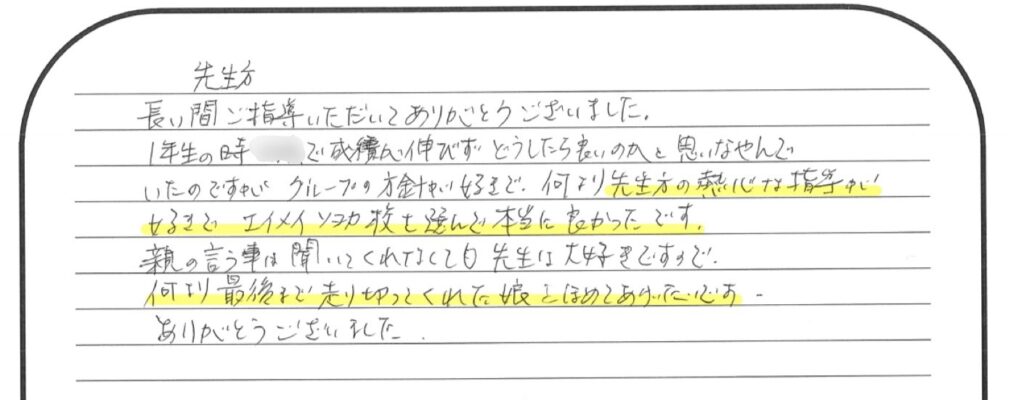 先生方
長い間ご指導いただいてありがとうございました。
1年生の時 で成績が伸びずどうしたら良いのかと思いなやんで
いたのですが グループの方針が好きで、何より先生方の熱心な指導が
好きで エイメイ 校を選んで本当に良かったです。
親の言う事は聞いてくれなくても先生は大好きですので、
何より最後まで走り切ってくれた娘をほめてあげたいです。
ありがとうございました。